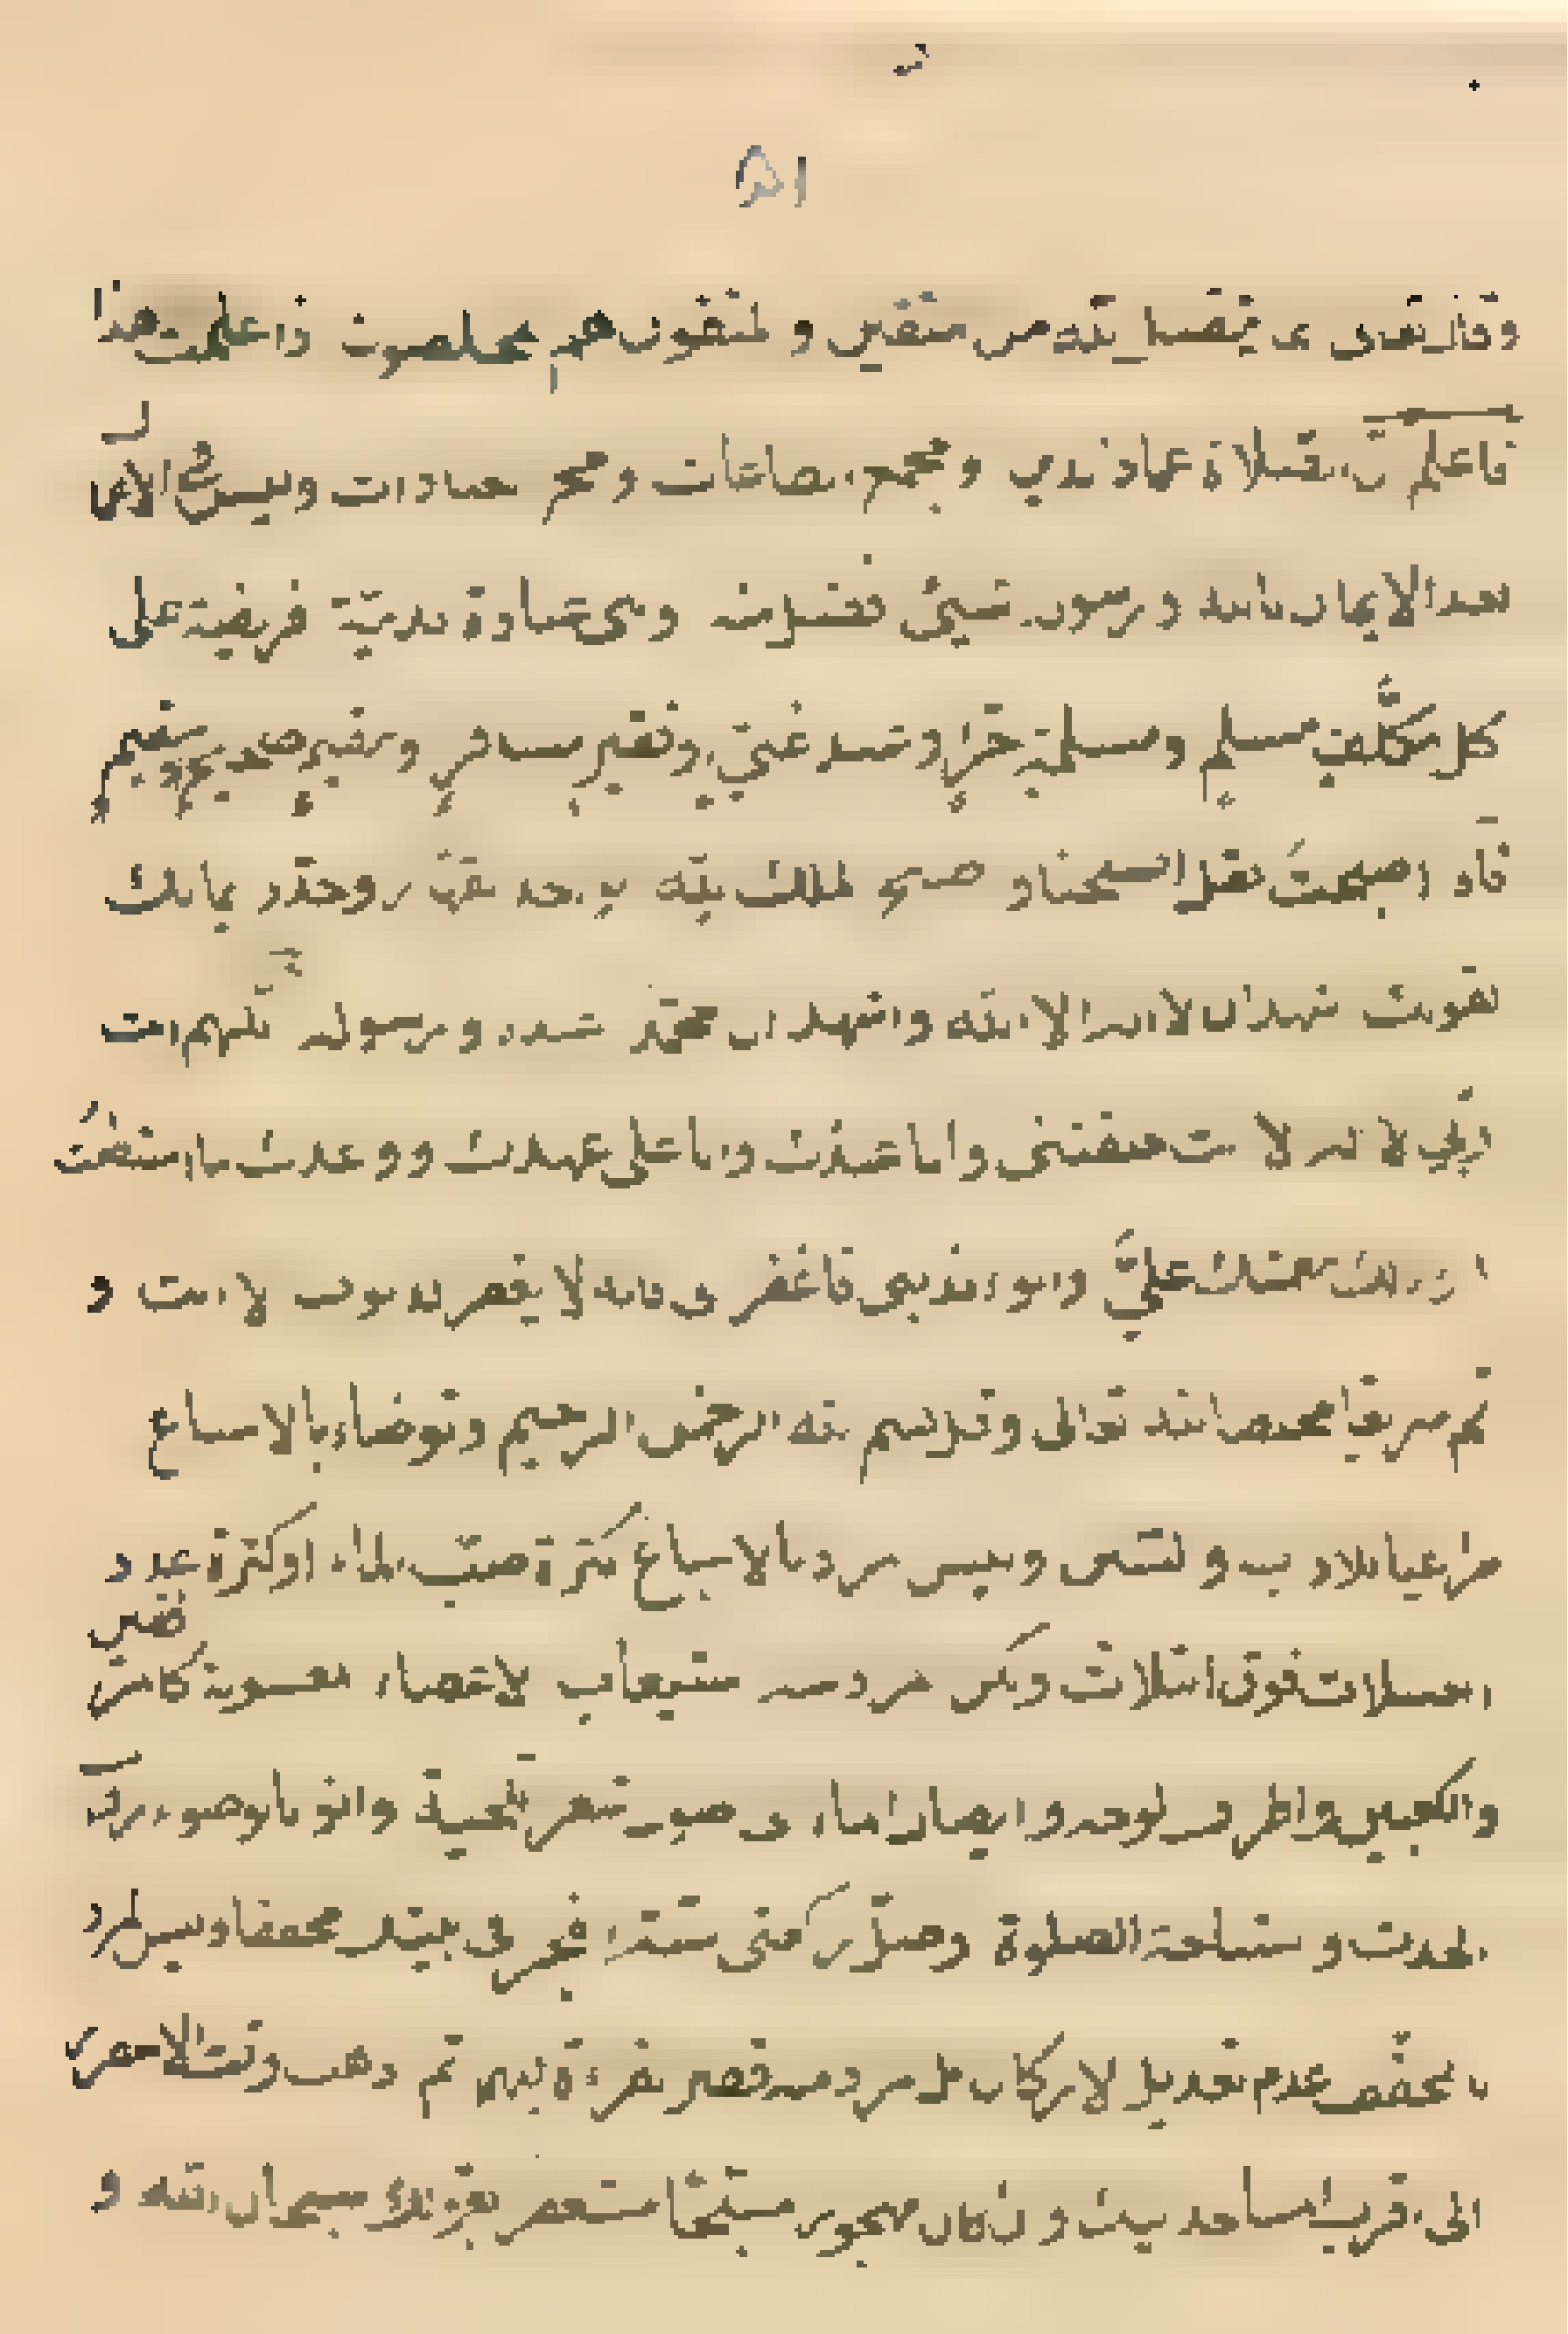 ٥١
وقال تعالى انما يتقبل الله من المتقين والمتقون هم المخلصون واذا علمت هذا
فاعلم ان الصلاة عماد الدين ومجمع الطاعات ومخ العبادات وليس في الاعمال
بعد الايمان بالله ورسوله شيئ افضل منه وهى عبادة بدنيّة فريضة على
كل مكلّفٍ مسلمٍ ومسلمةٍ حرّ او عبد غنيّ وفقير مسافرٍ ومقيم صحيحٍ
فاذا اصبحتَ فقل اصبحنا و اصبح الملك لله الواحد القهّار وجدد ايمانك
بقولك اشهد ان لا اله الا الله واشهد ان محمّدا عبده ورسوله اللّهم انت
ربّي لا اله الا انت خلقتنى وانا عبدُك وانا على عهدك ووعدك ما استطعتُ
ابوء لك بنعمتك عليَّ وابوء بذنبى فاغفر لى فانه لا يغفر الذنوب الا انت و
قم سريعا مخلصا لله تعالى وقل بسم الله الرحمن الرحيم وتوضاء بالاسباغ
مراعيا للاداب والسنن وليس مراد بالاسباغ كثرة صبّ الماء او كثرة عدد
الغسلات فوق الثلاث ولكن استيعاب الاعضاء المغسولة
والكعبين واطراف الوجه وايصال الماء الى اصول شعر اللحية وانو بالوضوء رفع
الحدث واستباحة الصلوة وصلّ ركعتى سنّة الفجر فى بيتك مخففا وليس المراد
بالتخفيف عدم تعديل الاركان بل المراد منه قصر القراءة فيهما ثم اذهب وقت الاسفار
الى اقرب المساجد بيتك وان كان مهجورا مسبّحًا مستغفرا بقولك سبحان الله و